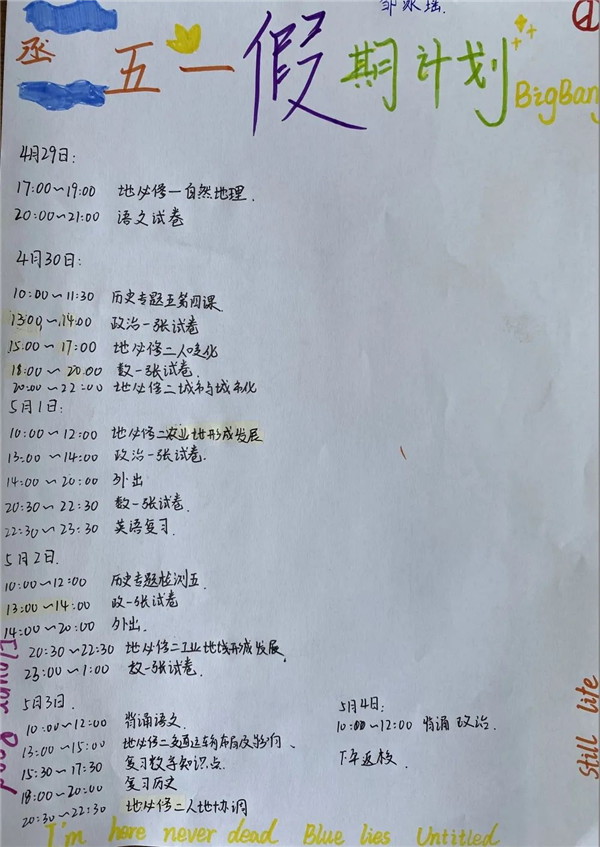 邹冰瑶.
丞 五一假期计划
BigBang
4月29日:
17:00~19:00 地必修一自然地理.
20:00~21:00 语文试卷
4月30日:
10:00~11:30 历史专题五第四课
13:00~14:00 政治一张试卷
15:00~17:00 地必修二人口变化
18:00~20:00 数一张试卷.
20:00~22:00 地必修二城市与城市化
5月1日:
10:00~12:00 地必修二农业地形成发展
13:00~14:00 政治一张试卷.
14:00~20:00 外出
20:30~22:30 数一张试卷.
22:30~23:30 英语复习.
5月2日.
10:00~12:00 历史专题检测五.
13:00~14:00 政一张试卷
14:00~20:00 外出.
20:30~22:30 地必修二工业地域形成发展.
23:00~1:00 数一张试卷.
5月3日.
10:00~12:00 背诵语文.
13:00~15:00 地必修二交通运输布局及影响.
15:30~17:30 复习数学知识点.
18:00~20:00 复习历史
20:30~22:30 地必修二人地协调
5月4日:
10:00~12:00 背诵政治.
下午返校
Flower Road
Still life
I'm here never dead Blue lies Untitled